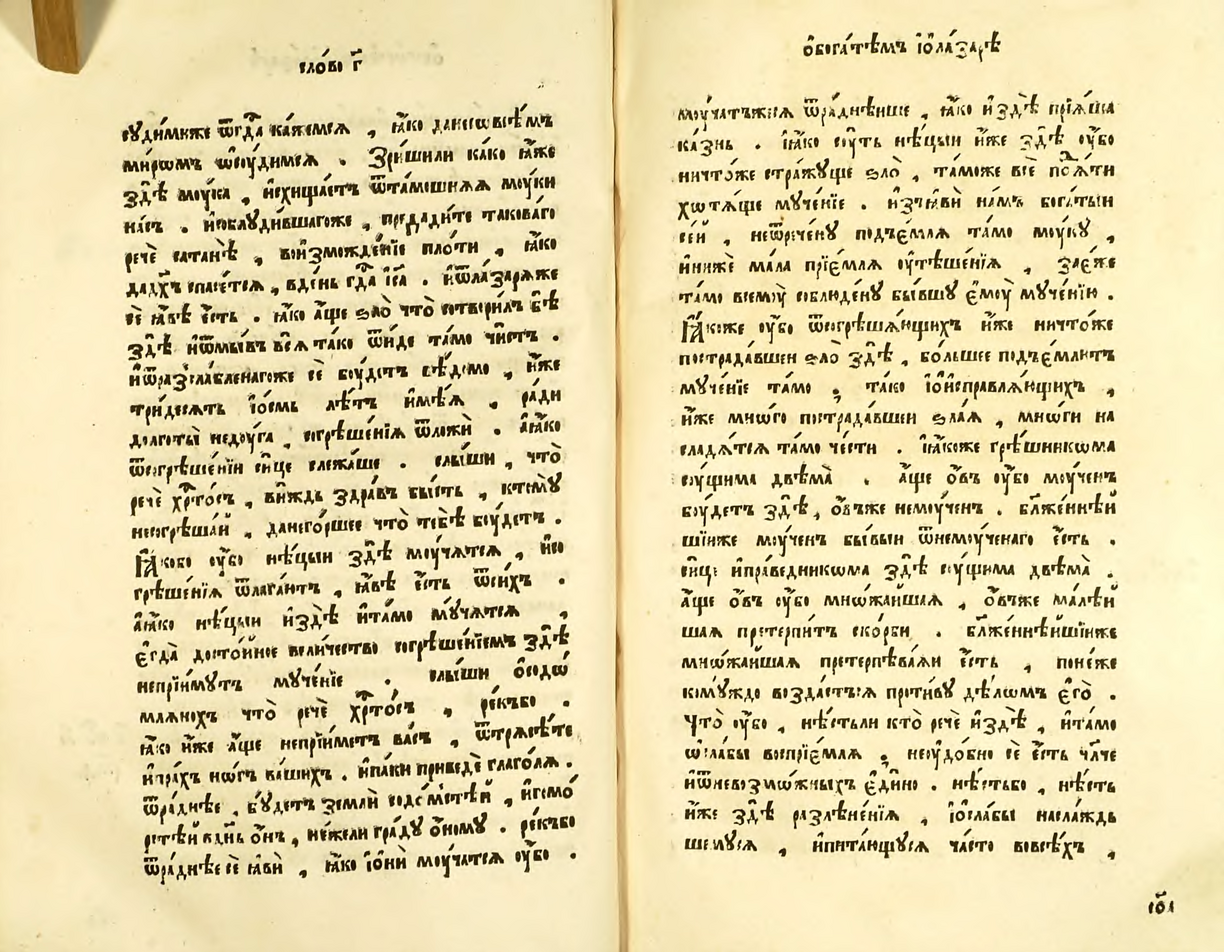 сло́во г҃
су́димиже ѿгда̀ ка́жемсѧ , ꙗ҆́ко данесовсѣ́мъ
ми́ромъ ѡ҆су́димсѧ . Зри́шили ка́ко ꙗ҆́же
здѣ̀ мо́ука , и҆схища́етъ ѿта́мошнѧѧ мо́уки
на́съ . и҆соблуди́вшагоже , предади́те такова́го
речѐ сатанѣ̀ , воизможде́нїе пло́ти , ꙗ҆́ко
дадх҃ъ спасе́тсѧ , вде́нь гд҃а і҆с҃а . и҆ѡла́зарѧже
сѐ ꙗ҆́вѣ є҆́сть . ꙗ҆́ко а҆́ще ѕло̀ что̀ сотвори́лъ бѣ̀
здѣ̀ и҆ѡмы́въ всѧ̀ та́ко ѿи́де та́мо чи́стъ .
и҆ѡразсла́бленагоже сѐ бо́удетъ вѣ́домо , и҆́же
три́десѧть і҆о́смь лѣ́тъ и҆мѣ́ѧ , ра́ди
долготы̀ недо́уга , согрѣше́нїѧ ѿложѝ . а҆ꙗ҆́ко
ѿсогрѣше́нїи си́це слежа́ше . слы́ши , что̀
речѐ хрⷭ҇то́съ , ви́ждь здра́въ бы́сть , ктомꙋ̀
несогрѣша́й , данего́ршее что̀ тебѣ̀ бо́удетъ .
Ꙗ҆́кобо оу҆́бо нѣ́цыи здѣ̀ мо́учѧтсѧ , и҆со
грѣше́нїѧ ѿлага́ютъ , ꙗ҆́вѣ є҆́сть ѿси́хъ .
а҆ꙗ҆́ко нѣ́цыи и҆здѣ̀ и҆та́мо мꙋ́чѧтсѧ ,
є҆гда̀ досто́йное вели́чество согрѣше́нїемъ здѣ̀
непрїи́мутъ мꙋче́нїе . слы́ши ѡ҆содо
млѧнохъ что̀ речѐ хрⷭ҇то́съ , ре́къбо .
ꙗ҆́ко и҆́же а҆́ще непрїи́метъ ва́съ , ѿтрѧсѣ́те
и҆пра́хъ но́гъ ва́шихъ . и҆па́ки приведѐ глаго́лѧ .
ѿра́днѣе , бꙋ́детъ землѝ содо́мстѣй , и҆гомо́
рстѣй вдн҃ь ѻ҆́нъ , не́жели гра́ду ѻ҆́номꙋ . ре́къбо
ѿра́днѣе сѐ ꙗ҆вѝ , ꙗ҆́ко і҆ѻ҆нѝ мо́учатсѧ оу҆́бо .
ѡ҆бога́тѣмъ і҆ѡла́зарѣ
мо́учатъжесѧ ѿра́днѣише , ꙗ҆́ко и҆здѣ̀ прїѧ́ша
ка́знь . и҆ꙗ҆́ко со́уть нѣ́цыи и҆́же здѣ̀ оу҆́бо
ничто́же стра́жуще ѕло̀ , та́може всѐ поⷭ҇ѧ́ти
хотѧ́ще мꙋче́нїе . и҆зꙗвѝ на́мъ бога́тыи
се́й , неѿрече́ну подъе́млѧ та́мо мо́укꙋ ,
и҆нижѐ ма́ла прїе́млѧ оу҆тѣше́нїѧ , зае́же
та́мо всемо́у соблюде́нꙋ бы́вшꙋ є҆мо́у мꙋче́нїю .
Ꙗ҆́коже оу҆́бо ѿсогрѣша́ющихъ и҆́же ничто́же
пострада́вшеи ѕло̀ здѣ̀ , бо́льшее подъе́млютъ
мꙋче́нїе та́мо , та́ко і҆ѻ҆исправлѧ́ющихъ ,
и҆́же мно́го пострада́вшеи ѕла́ѧ , мно́ги на
сладѧ́тсѧ та́мо че́сти . і҆ꙗ҆́коже грѣ́шникома
со́ущима двѣма̀ . а҆́ще ѻ҆́въ оу҆́бо мо́ученъ
бо́удетъ здѣ̀ , ѻ҆́въже немо́ученъ . бл҃же́ннѣй
шїиже мо́ученъ бы́выи ѿнемо́ученаго є҆́сть .
си́це и҆пра́ведникома здѣ̀ со́ущима двѣма̀ .
а҆́ще ѻ҆́въ оу҆́бо мно́жайшаѧ , ѻ҆́въже мале́й
шаѧ претерпи́тъ ско́рби . бл҃же́ннѣйшїиже
мно́жайшаѧ претерпѣва́ѧи є҆́сть , поне́же
комꙋ́ждо возда́стъсѧ проти́вꙋ дѣ́ломъ є҆гѡ̀ .
Что̀ оу҆́бо , нѣ́стьли кто̀ речѐ и҆здѣ̀ , и҆та́мо
ѡ҆сла́бы воспрїе́млѧ , неоудо́бно сѐ є҆́сть чл҃че
и҆ѡневозмо́жныхъ є҆ди́но . нѣ́стьбо , нѣ́сть
и҆́же здѣ̀ разлѣне́нїѧ , і҆осла́бы наслажд
шемꙋсѧ , и҆пита́ющꙋсѧ ча́сто вовсѣ́хъ ,